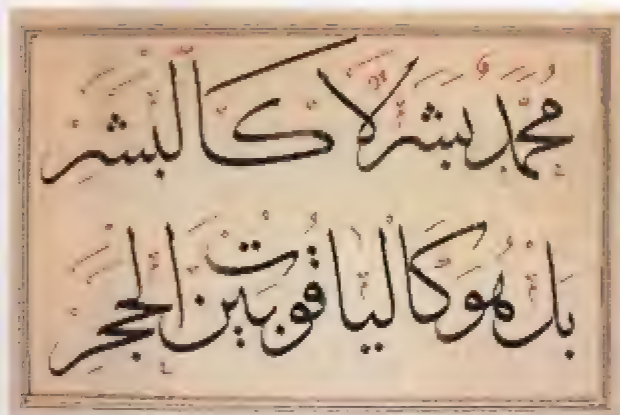 مُحَمَّد بَشَر لَا كَالْبَشَرِ
بَلْ هُوَ كَالْيَاقُوتِ بَيْنَ الْحَجَرِ